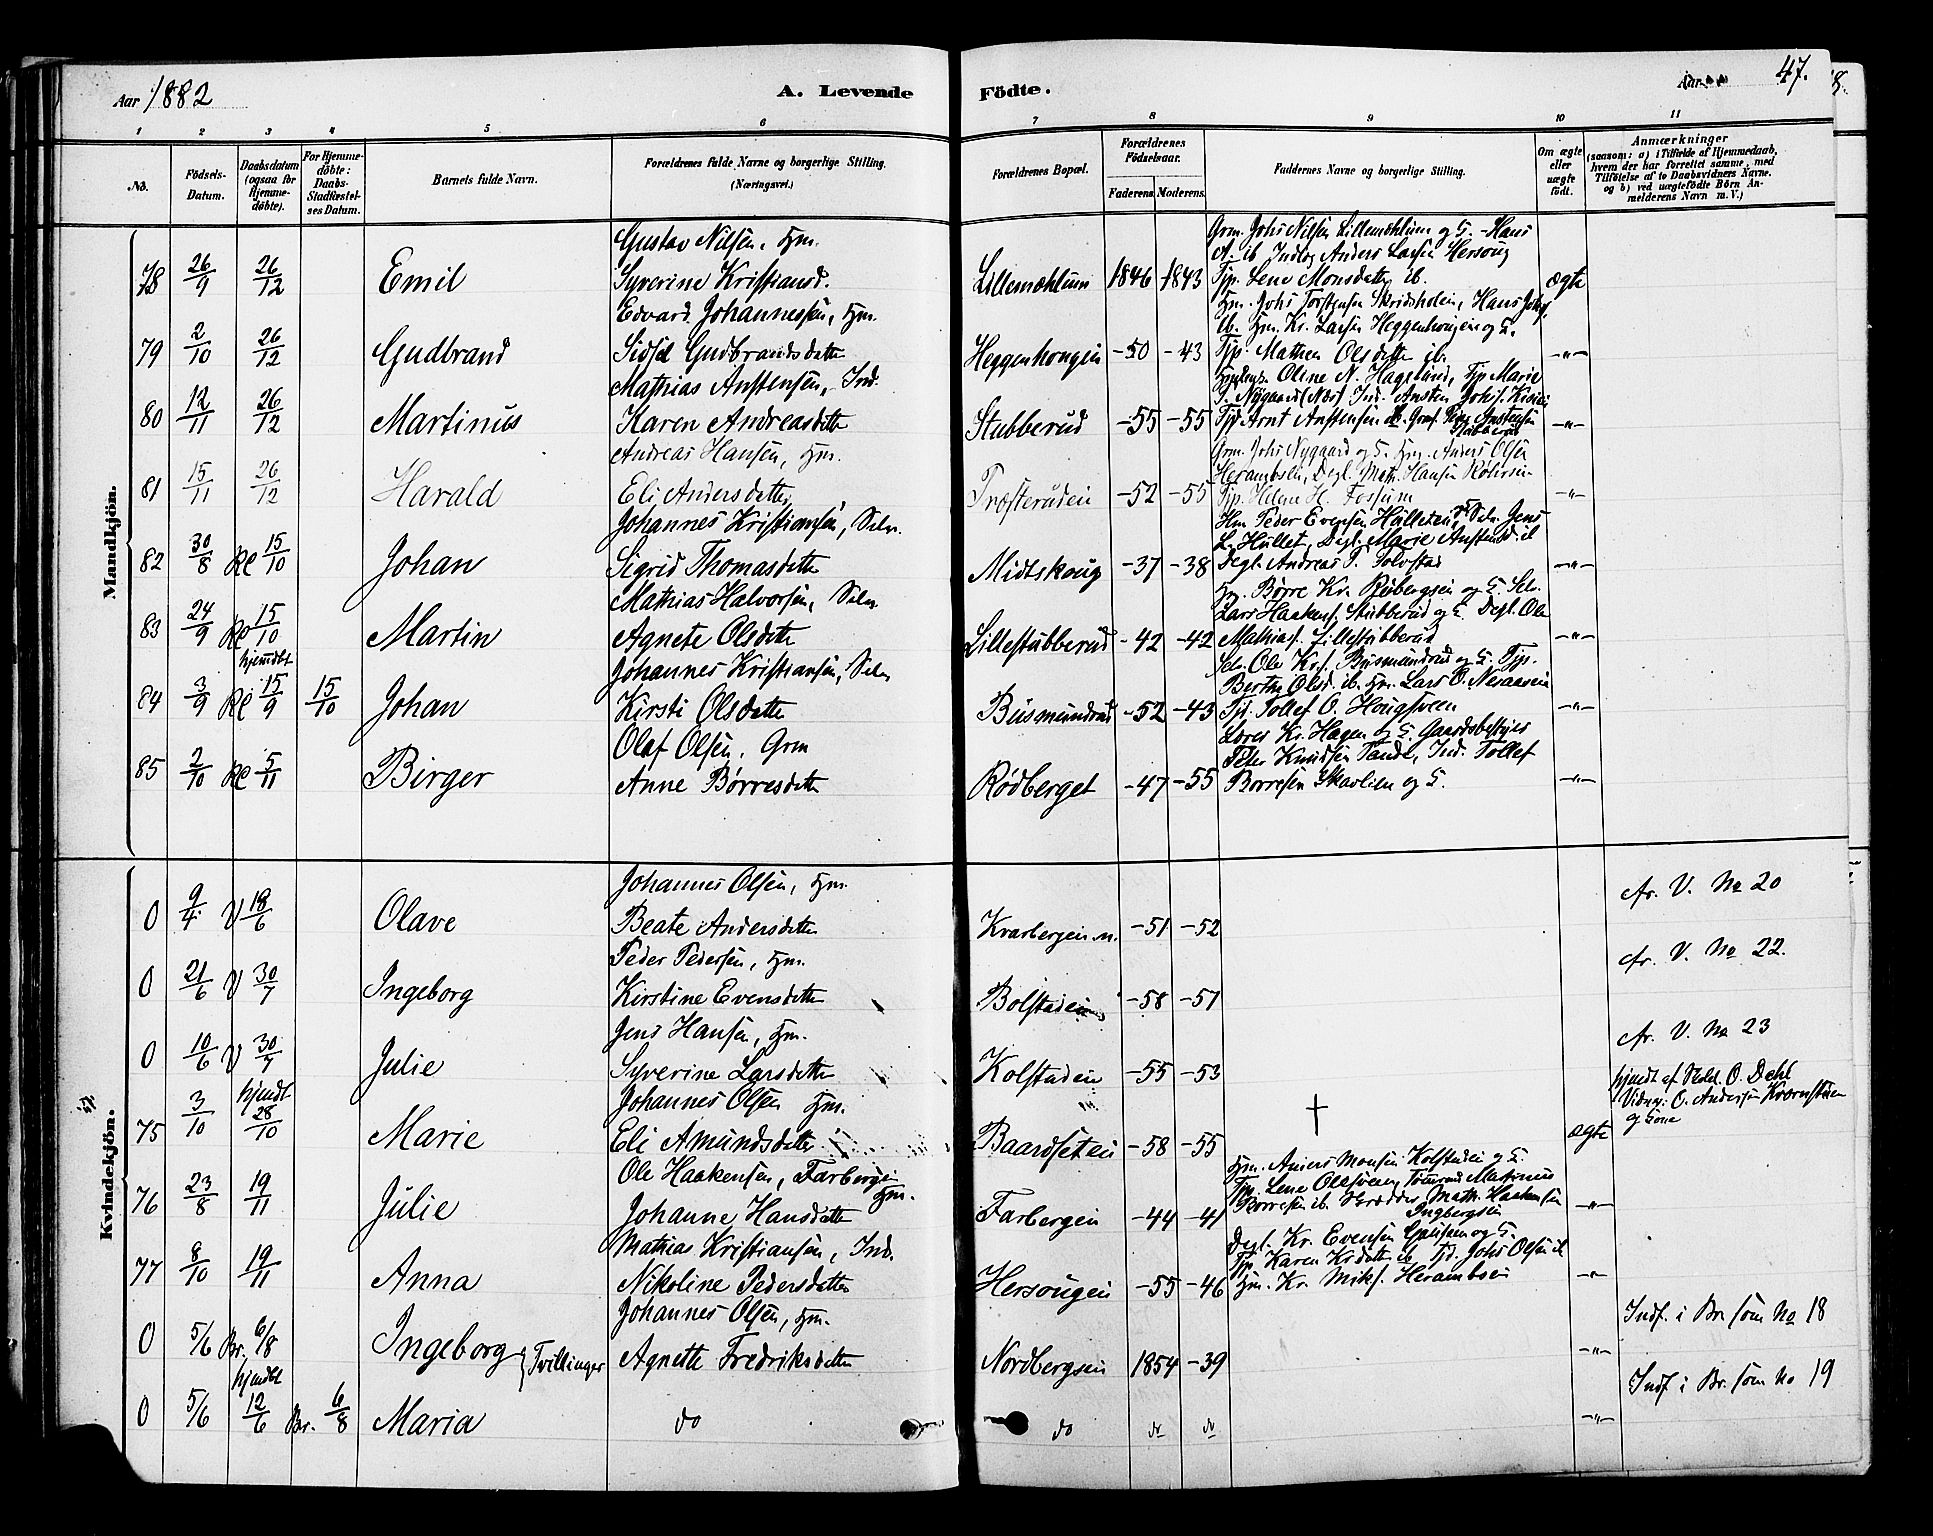 Aar 1882
A. Levende
Födte.
Aar
47.
1 2 3 4 5 6 7 8 9 10 11
No.
Födsels-Datum.
Daabsdatum (ogsaa for Hjemme-döbte).
For Hjemme-döbte: Daabs-Stadfæstel-ses Datum.
Barnets fulde Navn.
Forældrenes fulde Navne og borgerlige Stilling. (Næringsvei.)
Forældrenes Bopæl.
Forældrenes Födselsaar.
Faderens. Moderens.
Faddernes Navne og borgerlige Stilling.
Om ægte eller uægte födt.
Anmærkninger
(saasom: a) i Tilfælde af Hjemmedaab, hvem der har forrettet samme, med Tilföielse af to Daabsvidners Navne. og b) ved uægtefödte Börn An-melderens Navn m. V.)
Mandkjön.
78 26/9 26/12 Emil Gustav Nilsen, Hm. Syverine Kristiansd. Lillemæhlum 1846 1843 Grm. Johs Nilsen Lillemæhlum og H. - Hans A. ib Indlog Anders Larsen Hersoug Pip. Lene Monsdatter ib. ægte
79 2/10 26/12 Gudbrand Edvard Johannessen, Hm. Sidsel Gudbrandsdatter Heggenhougen -50 -43 Hm. Johs Torstensen Skridsholen, Hans Johs. ib. Hm. Kr. Larsen Heggenhougen og H. Pip. Mathea Olsdatter ib. -"-
80 12/11 26/12 Martinus Mathias Anstensen, Ind. Karen Andreasdatter Stubberud -55 -55 Oline N. Hagelund, Pip Marie J. Nygaard Ind. Ansten Johs. Arnt Anstensen ib. Peder Anstensen Stubberud -"-
81 15/11 26/12 Harald Andreas Hansen, Hm. Eli Andersdatter Træsteruden -52 -55 Grm. Johs Nygaard og H. Hm. Anders Olsen Herambsen, Degl. Math. Hansen Pip. Helene H. Fossum -"-
82 30/8 Re 15/10 Johan Johannes Kristiansen, Selv. Sigrid Thomasdatter Midtskoug -37 -38 Hm. Peder Evensen Hulleten, Selv. Jens L. Hullet, Degl. Marie Anstensd. ib Degl. Andreas P. Tolvstad -"-
83 24/9 Re 15/10 Martin Mathias Halvorsen, Selv. Agnete Olsdatter Lillestubberud -42 -42 Børre Kr. Rødbergsen og H. Selv. Lars Haakens. Stubberud og H. Degl. Ole Mathias. Lillestubberud -"-
84 3/9 hjemdbt Re 15/9 15/10 Johan Johannes Kristiansen, Selv Kirsti Olsdatter Busmundrud -52 -43 Selv. Ole Krs. Busmundrud og H. Pip. Berthe Olsd. ib. Hm. Lars O. Tollef O. Hougsveen -"-
85 2/10 Re 5/11 Birger Olaf Olsen, Grm Anne Børresdatter Rødberget -47 -55 Lærer Kr. Hagen og H. Gaardsbestyrer Peter Knudsen Tande, Ind. Tollef Børresen Skavlien og H. -"-
Kvindekjön.
0 9/4 V 18/6 Olave Johannes Olsen, Hm. Beate Andersdatter Kvarbergen n. -51 -52 Av. V. No 20
0 21/6 V 30/7 Ingeborg Peder Pedersen, Hm. Kirstine Evensdatter Bolstaden -58 -57 Av. V. No 22.
0 10/6 V 30/7 Julie Jens Hansen, Hm. Syverine Larsdatter Kolstaden -55 -53 Av. V. No 23
75 3/10 hjemdt 28/10 Marie Johannes Olsen Hm. Eli Amundsdatter Baardseten -58 -55 † ægte hjemdt af Skol. O. Dehl Vidner: O. Andersen Kvernstuen og Kone
76 23/8 19/11 Julie Ole Haakensen, Farbergen Hm. Johanne Hansdatter Farbergen -44 -41 Hm. Anders Monsen Kolstaden og H. Pip. Lene Olsveen, Tømrmd Mathinus Børresen ib. Skrædder Math. Haakensen Ingbergsen -"-
77 8/10 19/11 Anna Mathias Kristiansen, Ind. Nikoline Pedersdatter Hersougen -55 -46 Degl. Kr. Evensen og H. Pip. Karen Krsdatter ib Johs Olsen ib Hm. Kr. Miks. Herambsen -"-
0 5/6 Br. 6/8 Ingeborg } Tvillinger Johannes Olsen, Hm. Agnette Fredriksdatter Nordbergsen 1854 -39 -"- Indf. i Br. som No 18
0 5/6 hjemdbt 12/6 Br. 6/8 Maria do do do do -"- Indf i Br. som No 19